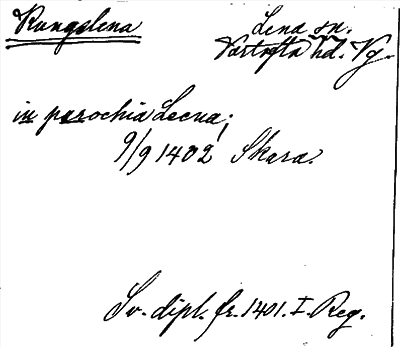 Rungslena
Lena sn.
Vartofta hd. Vg.
in parochia Lecna;
9/9 1402 Skara.
Sv. dipl. fr. 1401. I. Reg.